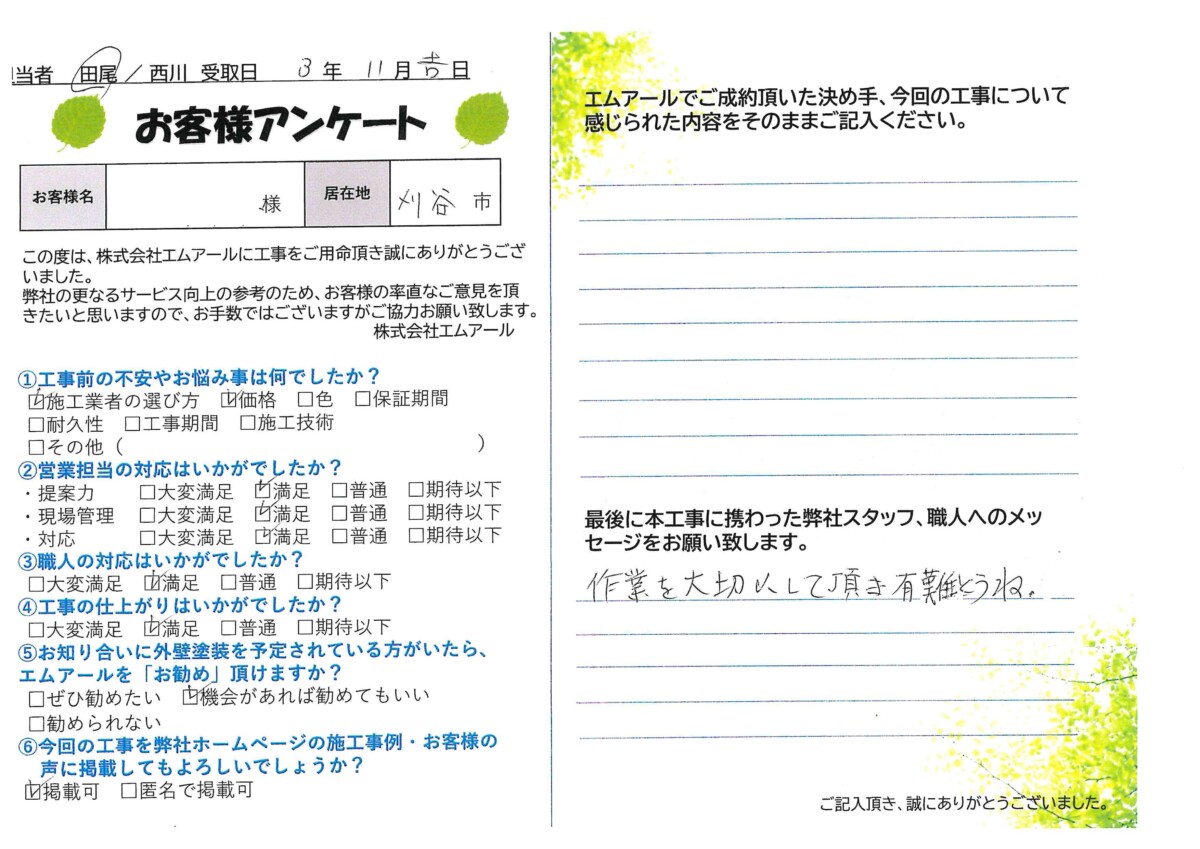 当者 田尾 / 西川 受取日 3年 11月吉日
お客様アンケート
お客様名 様 居在地 刈谷 市
この度は、株式会社エムアールに工事をご用命頂き誠にありがとうござ
いました。
弊社の更なるサービス向上の参考のため、お客様の率直なご意見を頂
きたいと思いますので、お手数ではございますがご協力お願い致します。
株式会社エムアール
①工事前の不安やお悩み事は何でしたか？
☑施工業者の選び方 ☑価格 □色 □保証期間
□耐久性 □工事期間 □施工技術
□その他（ ）
②営業担当の対応はいかがでしたか？
・提案力 □大変満足 ☑満足 □普通 □期待以下
・現場管理 □大変満足 ☑満足 □普通 □期待以下
・対応 □大変満足 ☑満足 □普通 □期待以下
③職人の対応はいかがでしたか？
□大変満足 ☑満足 □普通 □期待以下
④工事の仕上がりはいかがでしたか？
□大変満足 ☑満足 □普通 □期待以下
⑤お知り合いに外壁塗装を予定されている方がいたら、
エムアールを「お勧め」頂けますか？
□ぜひ勧めたい ☑機会があれば勧めてもいい
□勧められない
⑥今回の工事を弊社ホームページの施工事例・お客様の
声に掲載してもよろしいでしょうか？
☑掲載可 □匿名で掲載可
エムアールでご成約頂いた決め手、今回の工事について
感じられた内容をそのままご記入ください。
最後に本工事に携わった弊社スタッフ、職人へのメッ
セージをお願い致します。
作業を大切にして頂き有難とうね。
ご記入頂き、誠にありがとうございました。